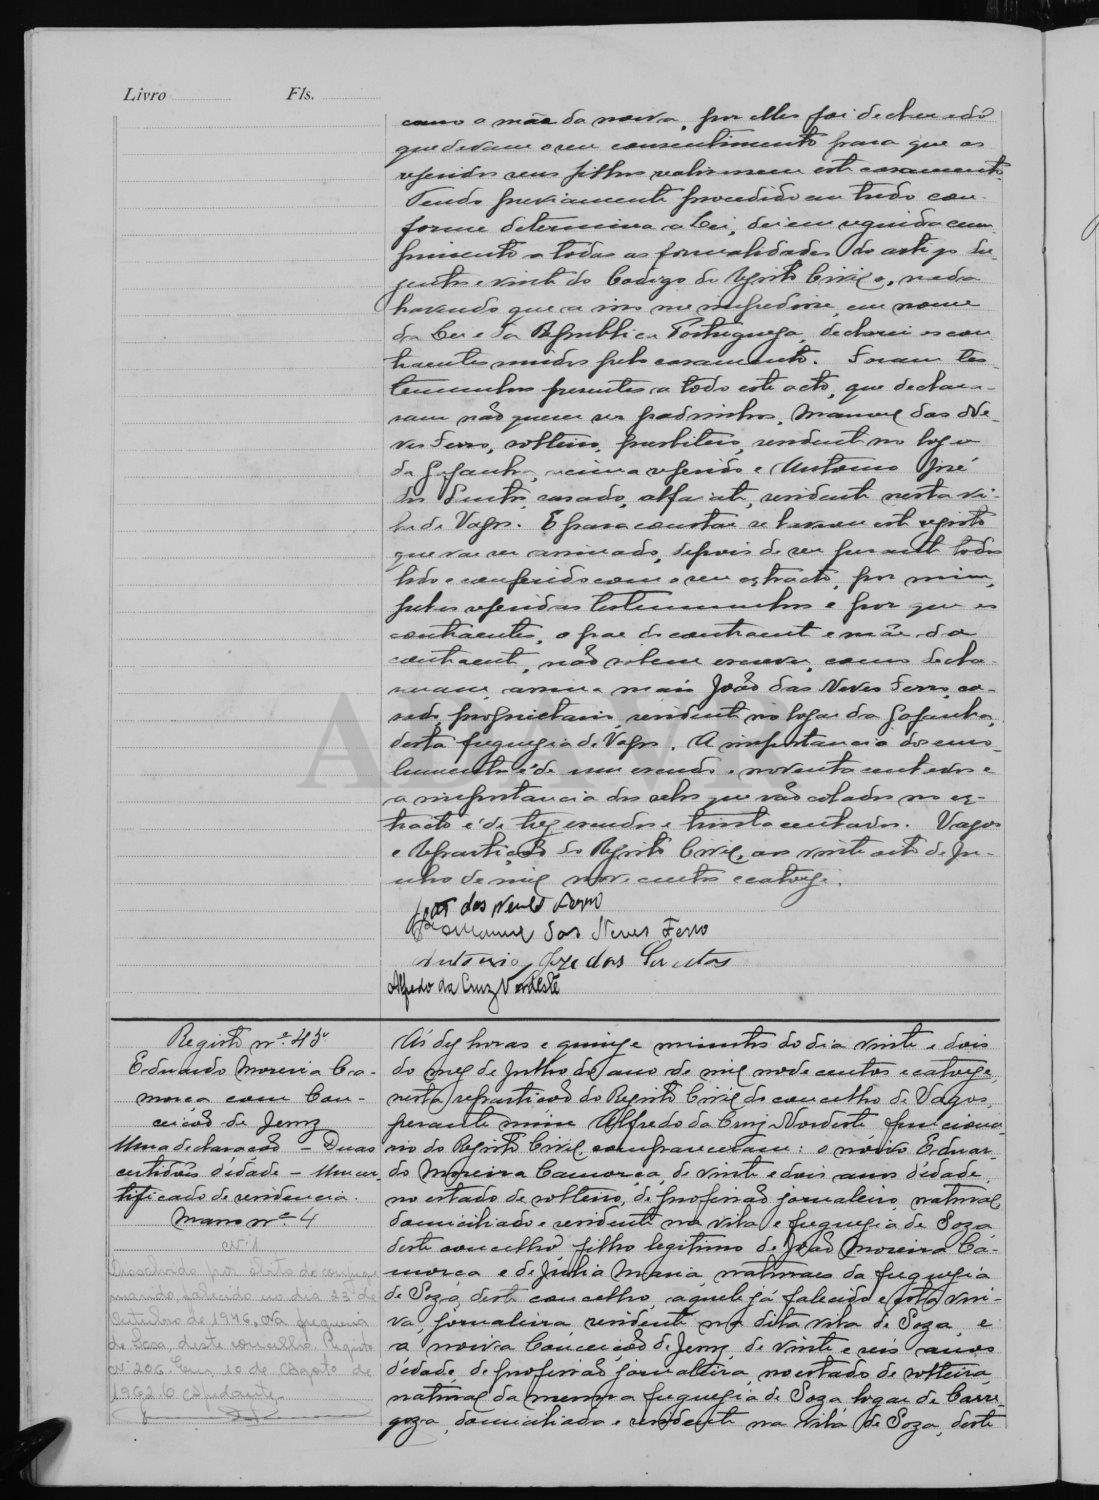 Livro Fls.
como a mãe da noiva, por elles foi declarado
que davam o seu consentimento para que os
referidos seus filhos realisassem este casamento.
Tendo previamente procedido em tudo con-
forme determina a Lei, dei em seguida cum-
primento a todas as formalidades do artigo du-
zentos e vinte do Codigo do Registo Civil e, nada
havendo que a isso me impedisse, em nome
da Lei e da Republica Portugueza, declarei os con
trahentes unidos pelo casamento. Foram tes
temunhas presentes a todo este acto, que declara-
ram não querer ser padrinhos, Manuel das Ne-
ves Ferro, solteiro, residente no logar
da Gafanha, acima referido e Antonio José
dos Santos, casado, alfaiate, residente nesta vi-
la de Vagos. E para constar se lavrou este registo
que vae ser assinado, depois de ser perante todos
lido e conferido com o seu extracto, por mim,
pelas referidas testemunhas e por que os
contraentes, o pae do contraente e mãe da
contraente, não sabem escrever, como decla-
raram, assina mais João das Neves Ferro, ca-
sado, proprietario, residente no logar da Gafanha,
desta freguesia de Vagos. A importancia dos emo-
lumentos é de um escudo e noventa centavos e
a importancia dos selos que vão colados no ex-
tracto é de trez escudos e trinta centavos. Vagos
e Repartição do Registo Civil, aos vinte oito de Ju-
nho de mil novecentos e catorze.
João das Neves Ferro
Manuel das Neves Ferro
Antonio Jose dos Santos
Alfredo da Cruz Nordeste
Registo nº. 45
Eduardo Moreira Ca-
morca com Con-
ceição de Jesus
Uma declaração – Duas
certidões d'edade – Um cer
tificado de residencia.
Maço nº. 4
Nº 1
Dissolvido por obito do conjuge
marido, falecido no dia 23 de
Outubro de 1946, na freguesia
de Soza, deste concelho. Registo
Nº 206. Em 10 de Agosto de
1962. O Ajudante,
Ás dez horas e quinze minutos do dia vinte e dois
do mez de Julho do ano de mil novecentos e catorze,
nesta repartição do Registo Civil do concelho de Vagos,
perante mim Alfredo da Cruz Nordeste funciona-
rio do Registo Civil compareceram: o noivo Eduar-
do Moreira Camorca, de vinte e dois anos d'edade,
no estado de solteiro, de profissão jornaleiro, natural,
domiciliado e residente na vila e freguesia de Soza,
deste concelho, filho legitimo de João Moreira Ca-
morca e de Julia Maria, naturaes da freguesia
de Soza, deste concelho, aquele já falecido e esta viu-
va, jornaleira, residente na dita vila de Soza, e
a noiva Conceição de Jesus, de vinte e seis anos
d'edade, de profissão jornaleira, no estado de solteira,
natural da mesma freguesia de Soza, logar de Carre
goza, domiciliada e residente na vila de Soza, deste